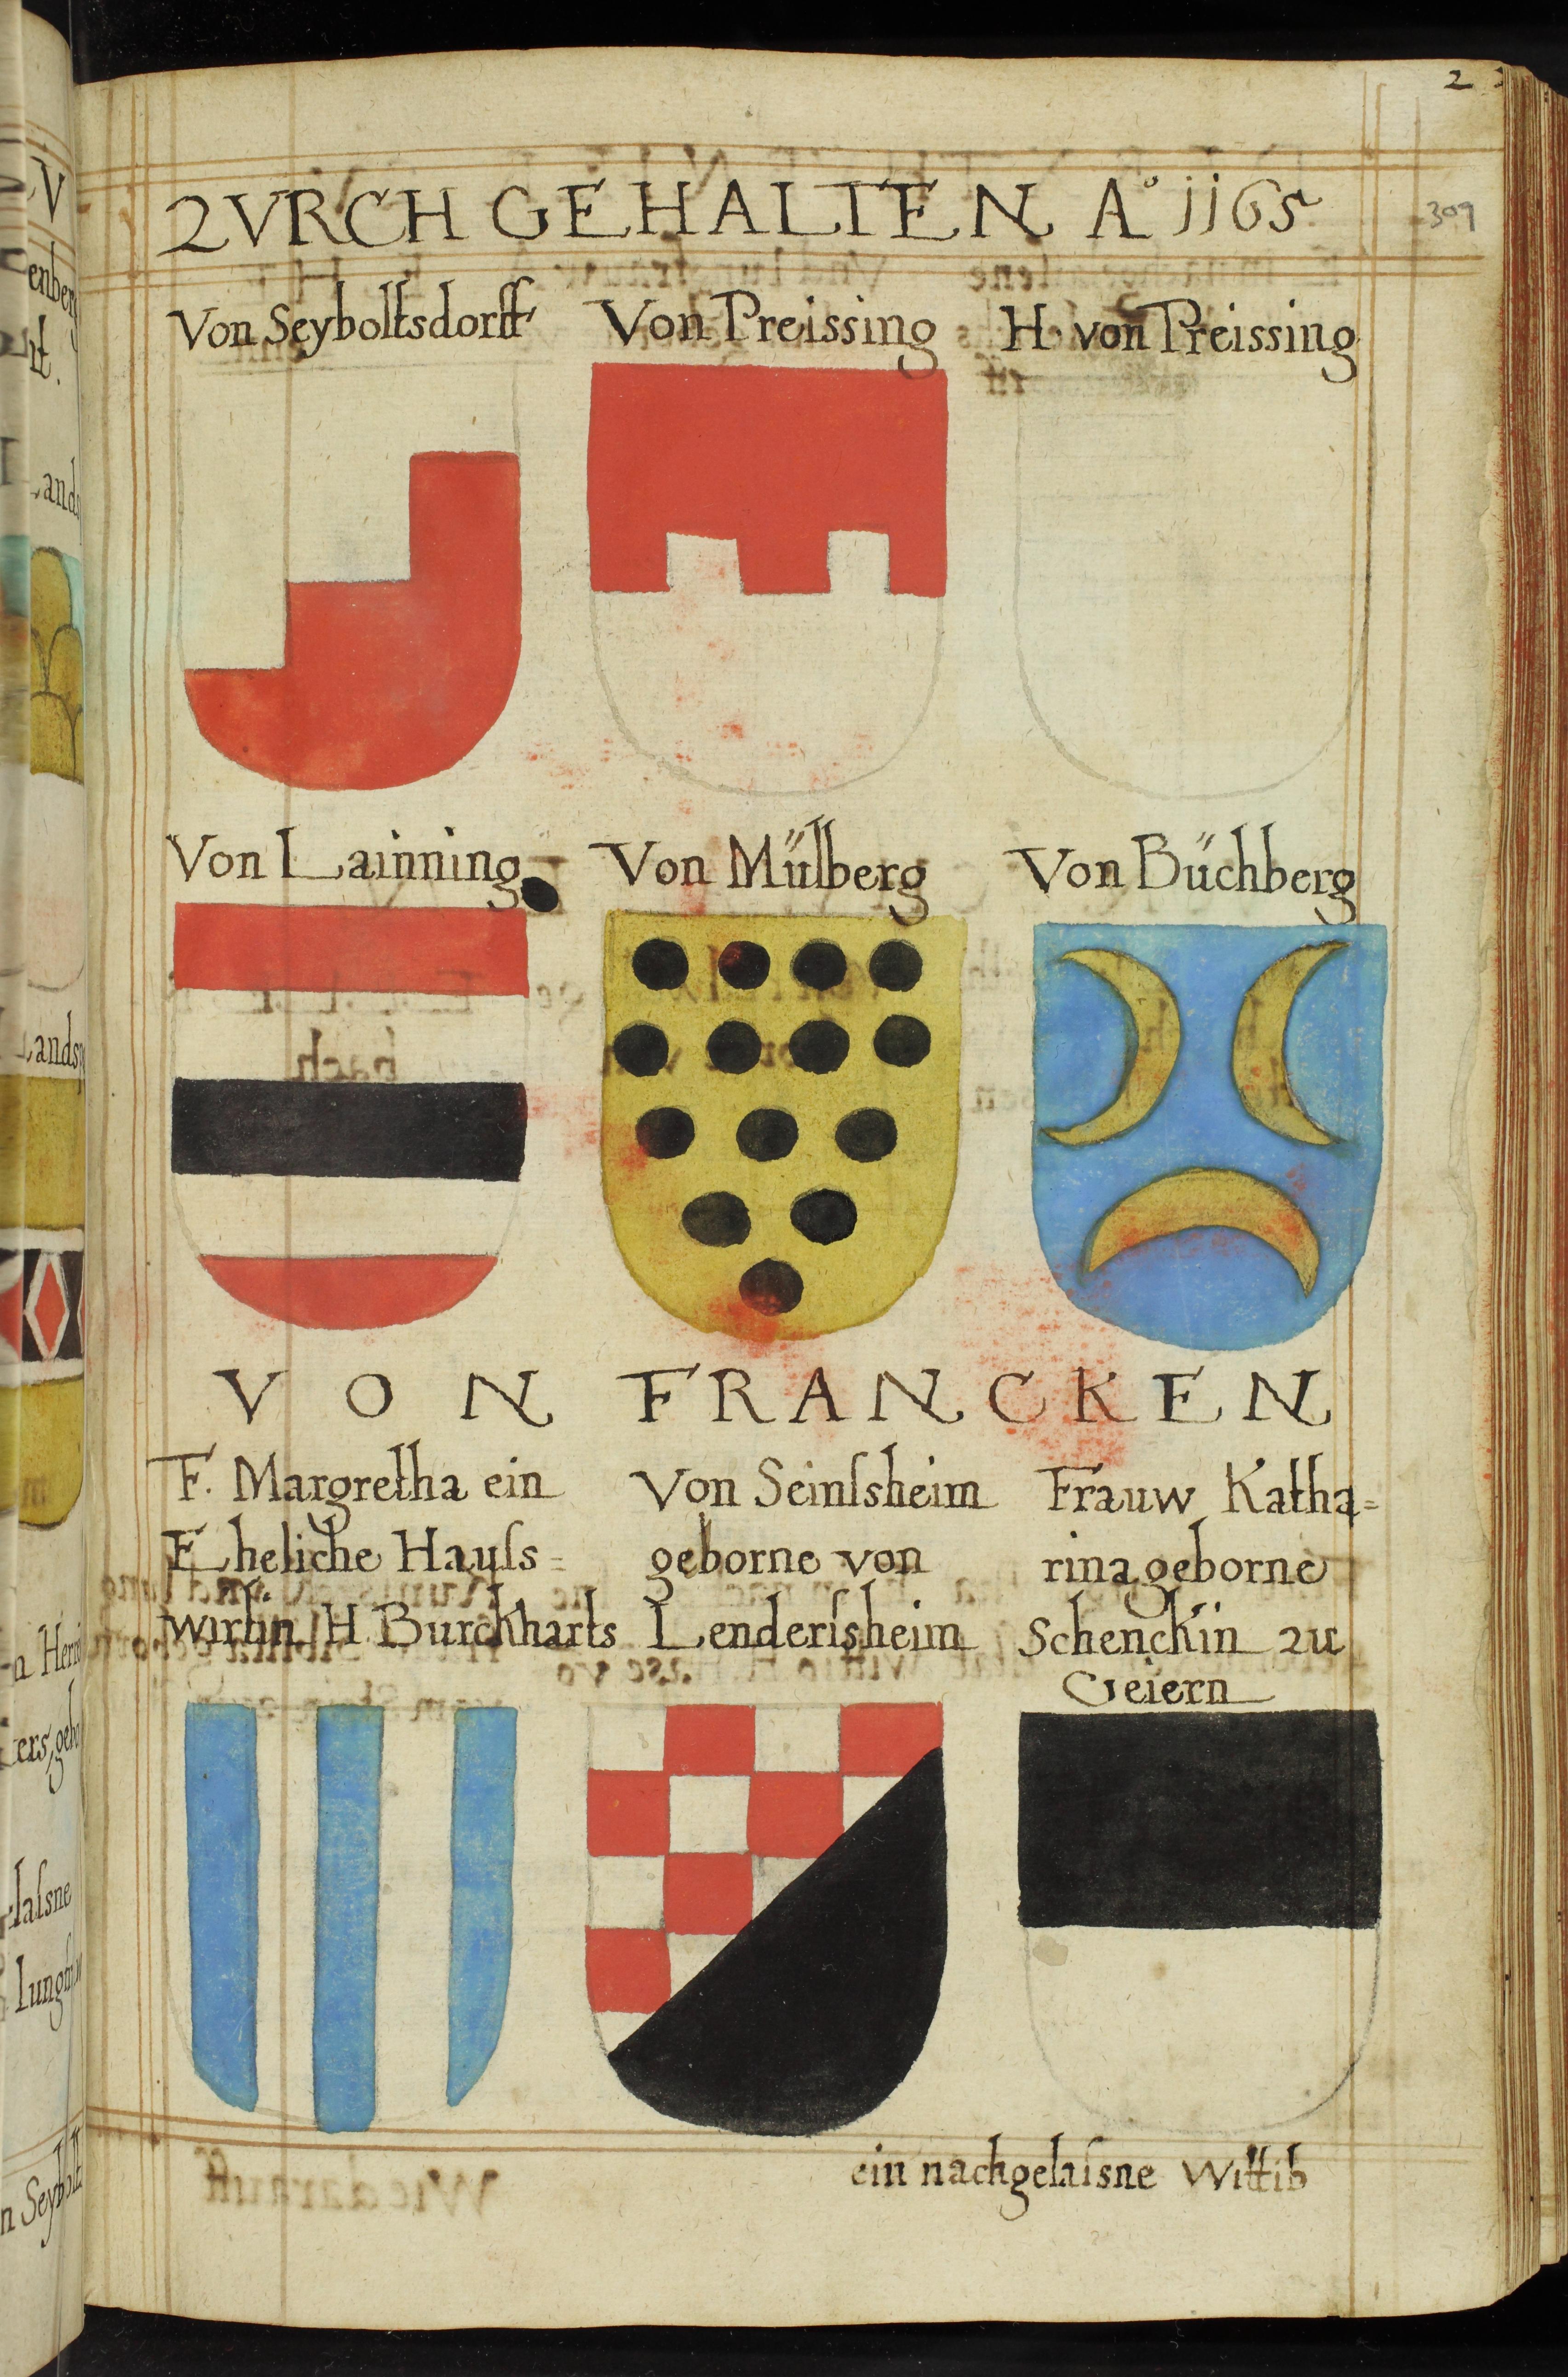 2
ZVRCH GEHALTEN A° 1165
309
Von Seyboltsdorff Von Preissing H. von Preissing
Von Lainning Von Mülberg Von Büchberg
VON FRANCKEN
F. Margretha ein
Eheliche Hauſs=
wirtin H Burckharts
Von Seinſsheim
geborne von
Lenderſsheim
Frauw Katha=
rina geborne
Schenckin zu
Geiern
ein nachgelaſsne Wittib